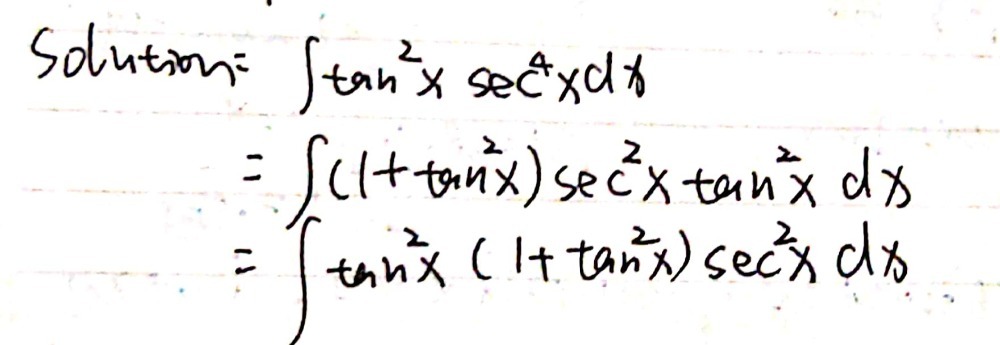 Solution: ∫tan²x sec⁴x dx
= ∫(1+tan²x) sec²x tan²x dx
= ∫tan²x (1+tan²x) sec²x dx